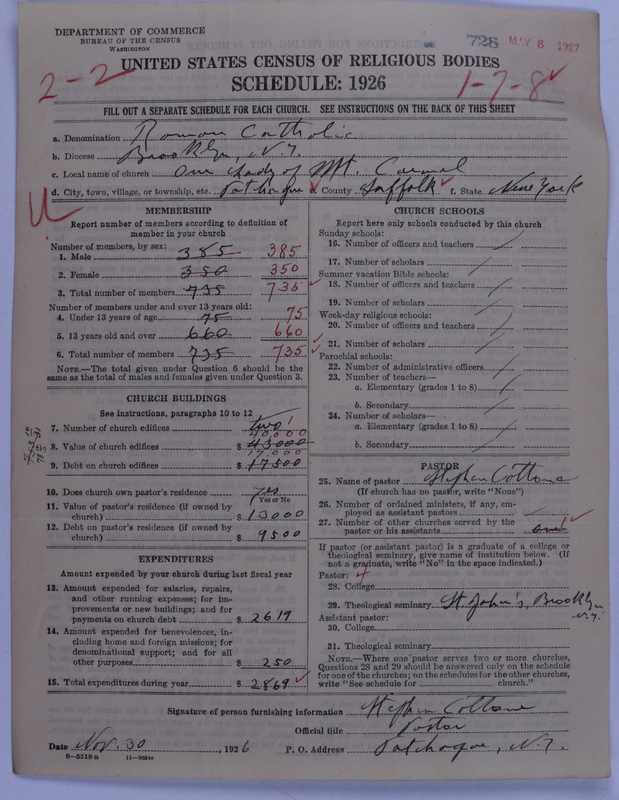 DEPARTMENT OF COMMERCE
BUREAU OF THE CENSUS
WASHINGTON
728 MAY 6 1927
UNITED STATES CENSUS OF RELIGIOUS BODIES
2-2 SCHEDULE: 1926 1-7-8
FILL OUT A SEPARATE SCHEDULE FOR EACH CHURCH. SEE INSTRUCTIONS ON THE BACK OF THIS SHEET
a. Denomination Roman Catholic
b. Diocese Brooklyn, N.Y.
c. Local name of church Our Lady of Mt. Carmel
d. City, town, village, or township, etc. Patchogue e. County Suffolk f. State New York
MEMBERSHIP
Report number of members according to definition of
member in your church
Number of members, by sex:
1. Male 385 385
2. Female 350 350
3. Total number of members 735 735
Number of members under and over 13 years old:
4. Under 13 years of age 75 75
5. 13 years old and over 660 660
6. Total number of members 735 735
NOTE.—The total given under Question 6 should be
same as the total of males and females given under Question 3.
CHURCH BUILDINGS
See instructions, paragraphs 10 to 12
7. Number of church edifices two 1
40,000
8. Value of church edifices $ 43000
17,000
9. Debt on church edifices $ 17500
10. Does church own pastor's residence yes
Yes or No
11. Value of pastor's residence (if owned by
church) $ 13000
12. Debt on pastor's residence (if owned by
church) $ 9500
EXPENDITURES
Amount expended by your church during last fiscal year
13. Amount expended for salaries, repairs,
and other running expenses; for im-
provements or new buildings; and for
payments on church debt $ 2619
14. Amount expended for benevolences, in-
cluding home and foreign missions; for
denominational support; and for all
other purposes $ 250
15. Total expenditures during year $ 2869
CHURCH SCHOOLS
Report here only schools conducted by this church
Sunday schools:
16. Number of officers and teachers
17. Number of scholars
Summer vacation Bible schools:
18. Number of officers and teachers
19. Number of scholars
Week-day religious schools:
20. Number of officers and teachers
21. Number of scholars
Parochial schools:
22. Number of administrative officers
23. Number of teachers—
a. Elementary (grades 1 to 8)
b. Secondary
24. Number of scholars—
a. Elementary (grades 1 to 8)
b. Secondary
PASTOR
25. Name of pastor Stephen Cottone
(If church has no pastor, write "None")
26. Number of ordained ministers, if any, em-
ployed as assistant pastors
27. Number of other churches served by the
pastor or his assistants one 1
If pastor (or assistant pastor) is a graduate of a college or
theological seminary, give name of institution below. (If
not a graduate, write "No" in the space indicated.)
Pastor:
28. College
29. Theological seminary St. John's, Brooklyn
N.Y.
Assistant pastor:
30. College
31. Theological seminary
NOTE.—Where one pastor serves two or more churches,
Questions 28 and 29 should be answered only on the schedule
for one of the churches; on the schedules for the other churches,
write "See schedule for church."
Signature of person furnishing information Stephen Cottone
Official title Pastor
Date Nov. 30, 1926 P. O. Address Patchogue, N.Y.
8—5518 a